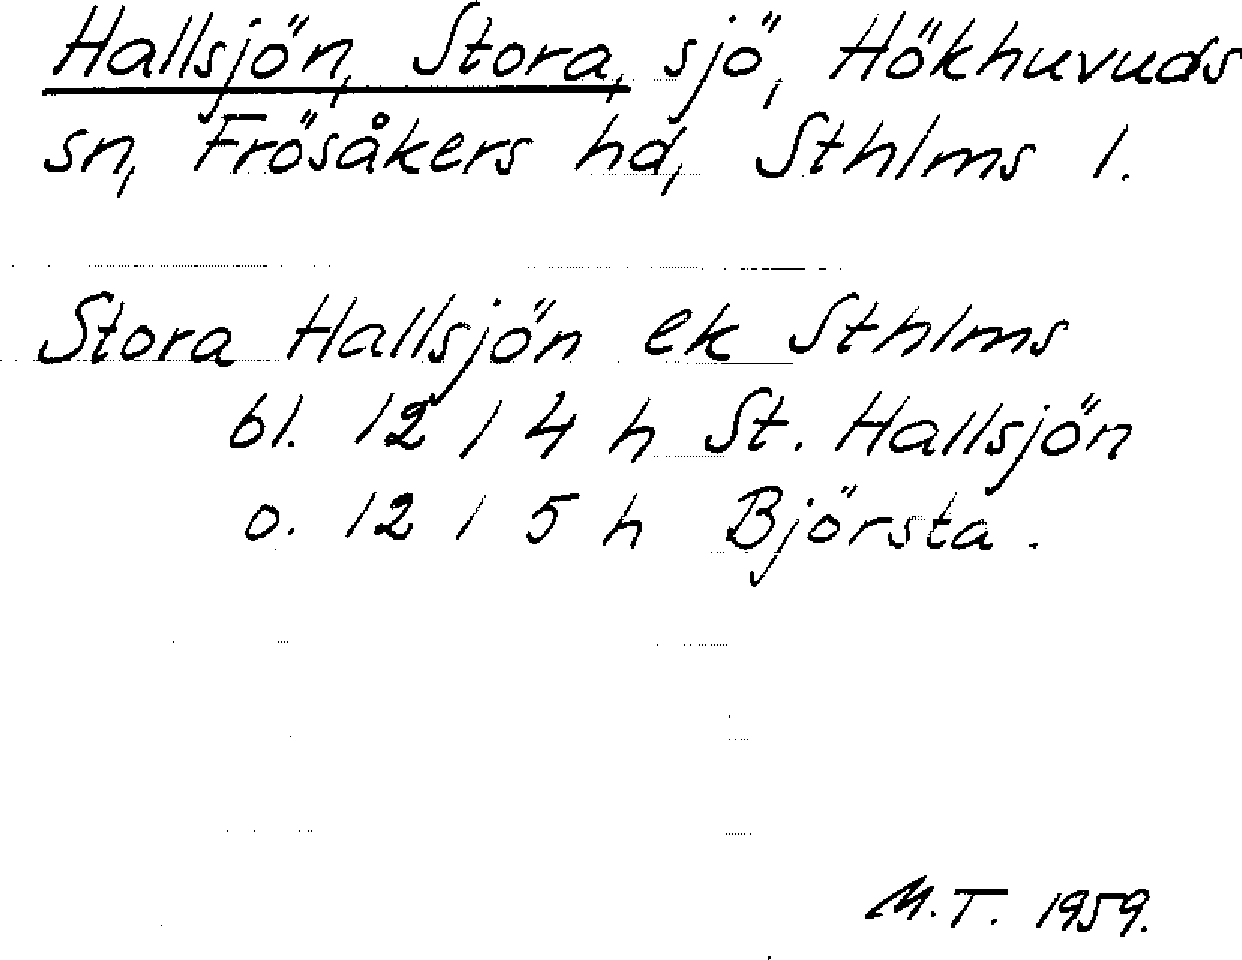 Hallsjön, Stora, sjö, Hökhuvuds
sn, Frösåkers hd, Sthlms l.
Stora Hallsjön ek Sthlms
bl. 12 I 4 h St. Hallsjön
o. 12 I 5 h Björsta.
M.T. 1959.